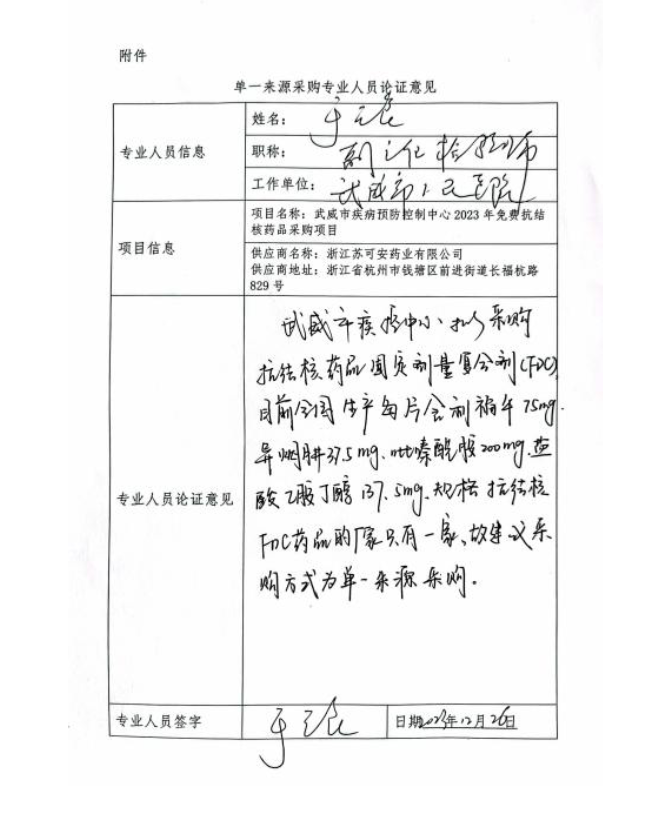 附件
单一来源采购专业人员论证意见
专业人员信息
姓名：
职称：副主任检验师
工作单位：武威市人民医院
项目信息
项目名称：武威市疾病预防控制中心 2023 年免费抗结
核药品采购项目
供应商名称：浙江苏可安药业有限公司
供应商地址：浙江省杭州市钱塘区前进街道长福杭路
829 号
专业人员论证意见
武威市疾控中心拟采购
抗结核药品固定剂量复合剂(FDC)
目前全国生产每片含利福平75mg.
异烟肼37.5mg、吡嗪酰胺200mg.盐
酸乙胺丁醇137.5mg.规格抗结核
FDC药品的厂家只有一家、故建议采
购方式为单一来源采购.
专业人员签字
日期2023年12月26日